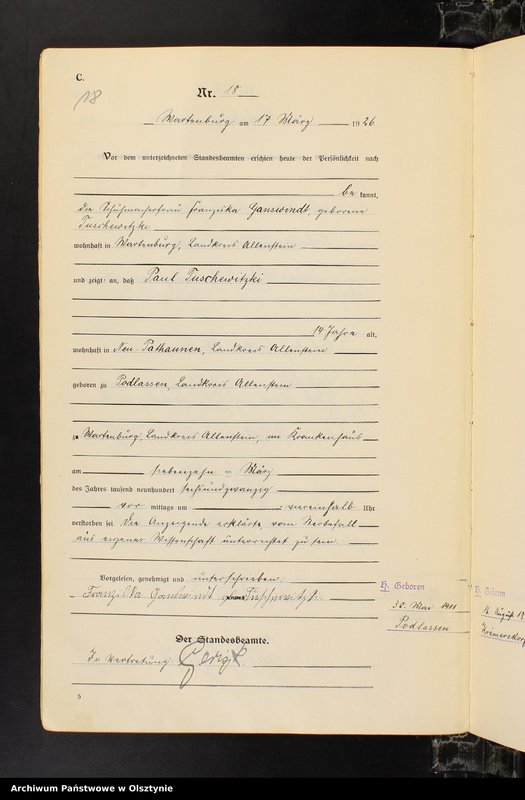 C.
18
Nr. 18
Wartenburg am 17 März 1926
Vor dem unterzeichneten Standesbeamten erschien heute der Persönlichkeit nach
be kannt,
die Schuhmacherfrau Franziska Ganswindt, geborene
Tuschewitzki
wohnhaft in Wartenburg, Landkreis Allenstein
und zeigte an, daß Paul Tuschewitzki
14 Jahre alt,
wohnhaft in Neu-Pathaunen, Landkreis Allenstein
geboren zu Podlassen, Landkreis Allenstein
zu Wartenburg, Landkreis Allenstein, im Krankenhaus
am siebenzehn ten März
des Jahres tausend neunhundert sechsundzwanzig
vor mittags um viereinhalb Uhr
verstorben sei. Die Anzeigende erklärte vom Sterbefall
aus eigener Wissenschaft unterrichtet zu sein.
Vorgelesen, genehmigt und unterschrieben.
Franziska Tuschewitzki
Der Standesbeamte.
In Vertretung.
5
H. Geboren
30. Mai 1911
Podlassen
H. Geboren
August
Archiwum Państwowe w Olsztynie